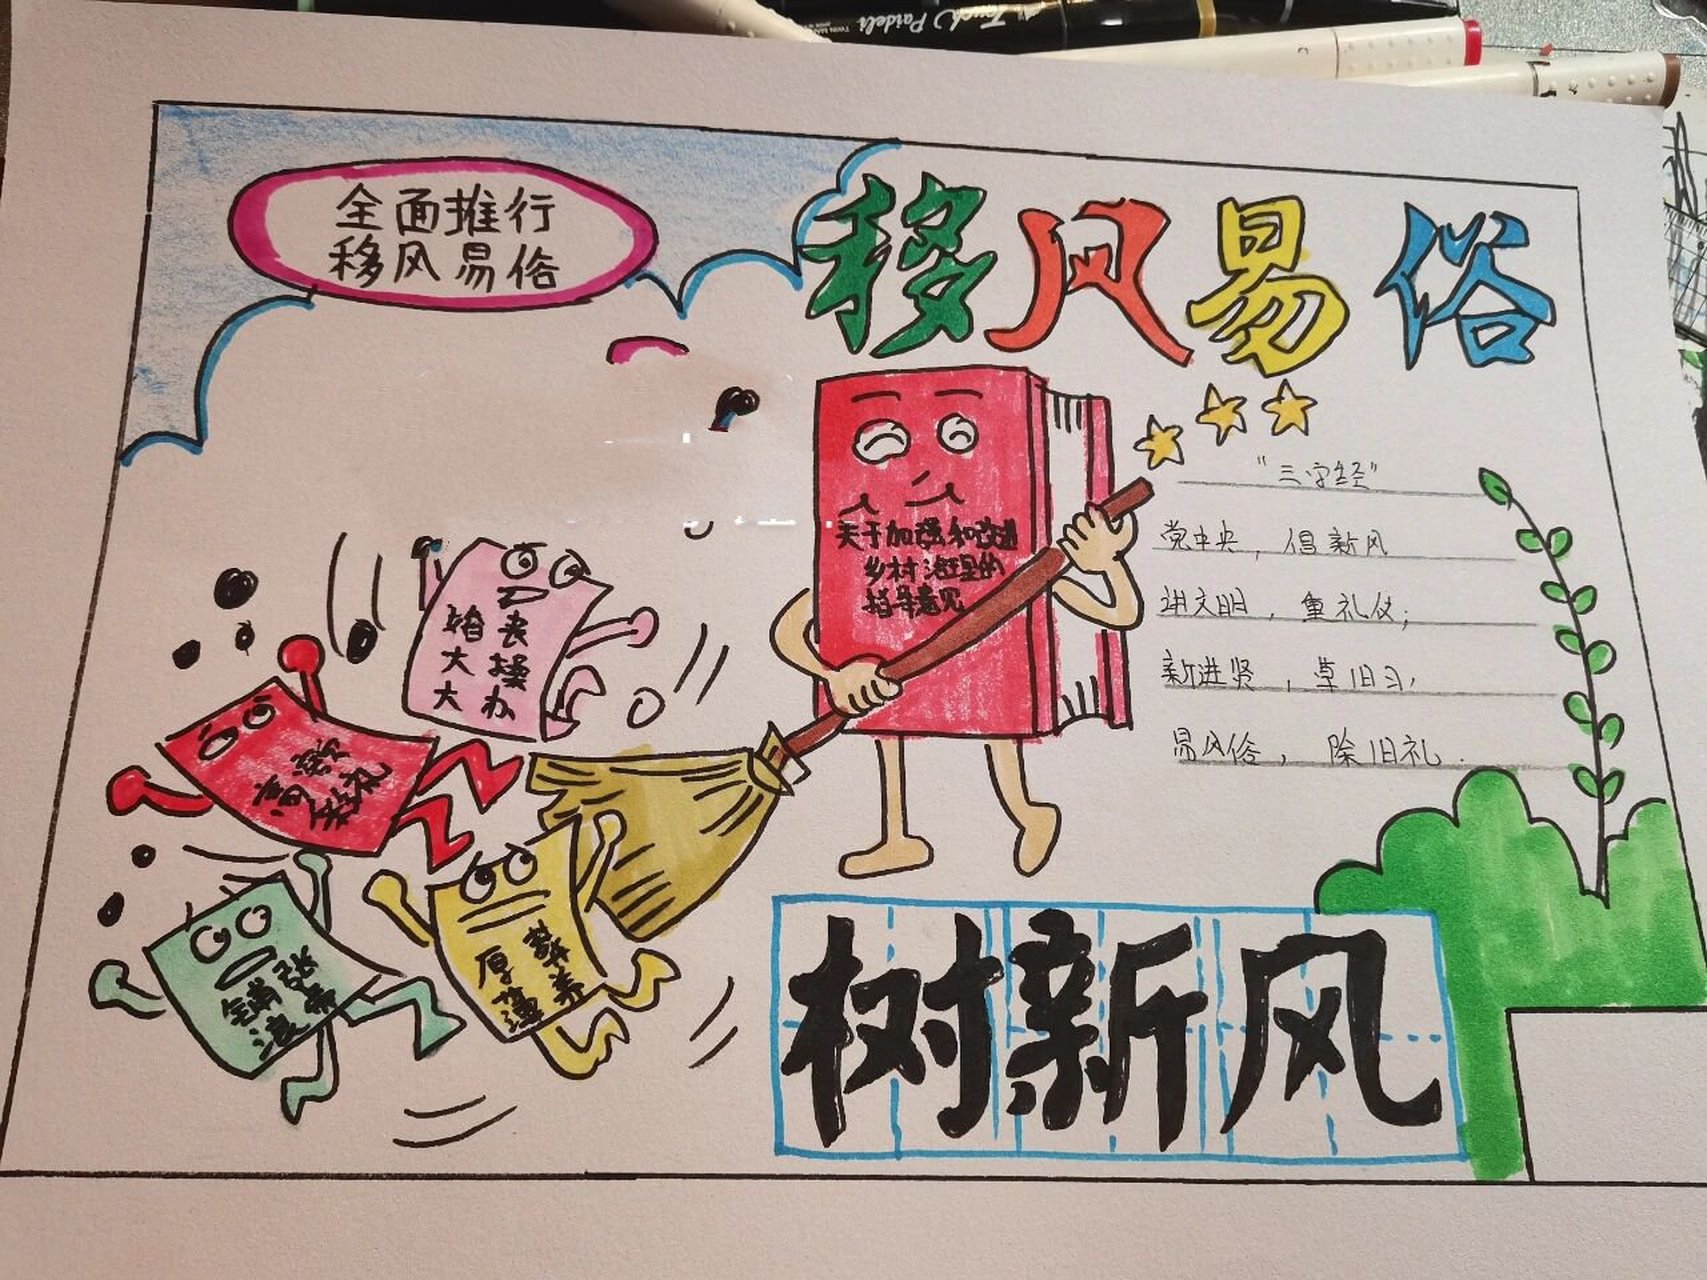 Touch Paideli
全面推行
移风易俗
移风易俗
"三字经"
党中央，倡新风
讲文明，重礼仪；
新进贤，草旧习，
易风俗，除旧礼.
关于加强和改进
乡村治理的
指导意见
婚丧
大操
大办
高额
彩礼
铺张
浪费
厚葬
薄养
树新风